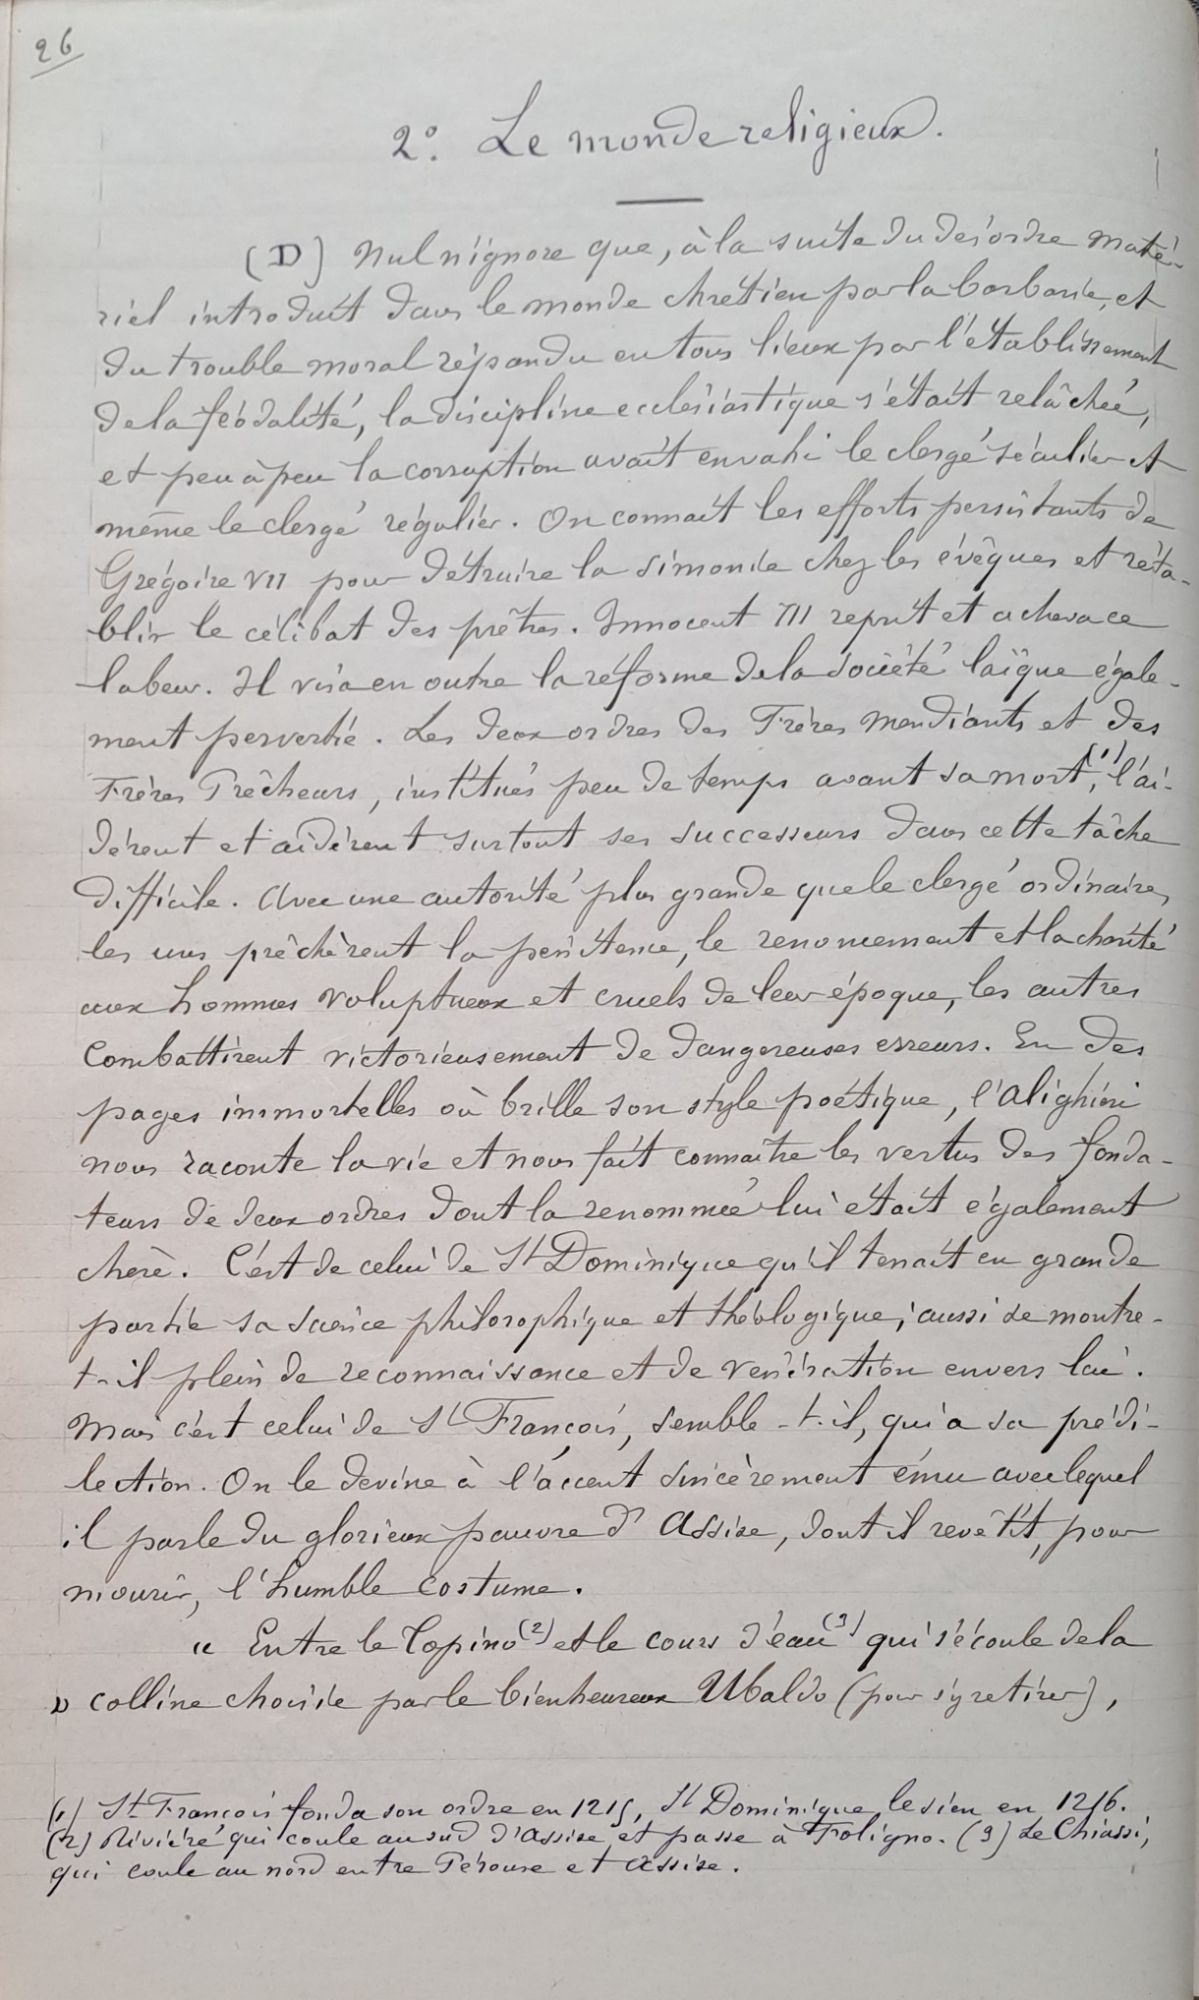 26
2°. Le monde religieux.
(D) Nul n'ignore que, à la suite du désordre maté-
riel introduit dans le monde chrétien par la barbarie, et
du trouble moral répandu en tous lieux par l'établissement
de la féodalité, la discipline ecclésiastique s'était relâchée,
et peu à peu la corruption avait envahi le clergé séculier et
même le clergé régulier. On connaît les efforts persistants de
Grégoire VII pour détruire la simonie chez les évêques et réta-
blir le célibat des prêtres. Innocent III reprit et acheva ce
labeur. Il visa en outre la réforme de la société laïque égale-
ment pervertie. Les deux ordres des Frères Mendiants et des
Frères Prêcheurs, institués peu de temps avant sa mort(1), l'ai-
dèrent et aidèrent surtout ses successeurs dans cette tâche
difficile. Avec une autorité plus grande que le clergé ordinaire,
les uns prêchèrent la pénitence, le renoncement et la charité
aux hommes voluptueux et cruels de leur époque, les autres
combattirent victorieusement de dangereuses erreurs. En des
pages immortelles où brille son style poétique, l'Alighieri
nous raconte la vie et nous fait connaître les vertus des fonda-
teurs de deux ordres dont la renommée lui était également
chère. C'est de celui de St Dominique qu'il tenait en grande
partie sa science philosophique et théologique; aussi se montre-
t-il plein de reconnaissance et de vénération envers lui.
Mais c'est celui de St François, semble-t-il, qui a sa prédi-
lection. On le devine à l'accent sincèrement ému avec lequel
il parle du glorieux pauvre d'Assise, dont il revêtit, pour
mourir, l'humble costume.
« Entre le Topino(2) et le cours d'eau(3) qui s'écoule de la
» colline choisie par le bienheureux Ubaldo (pour s'y retirer),
(1) St François fonda son ordre en 1215, St Dominique le sien en 1216.
(2) Rivière qui coule au sud d'Assise et passe à Foligno. (3) Le Chiassi,
qui coule au nord entre Pérouse et Assise.